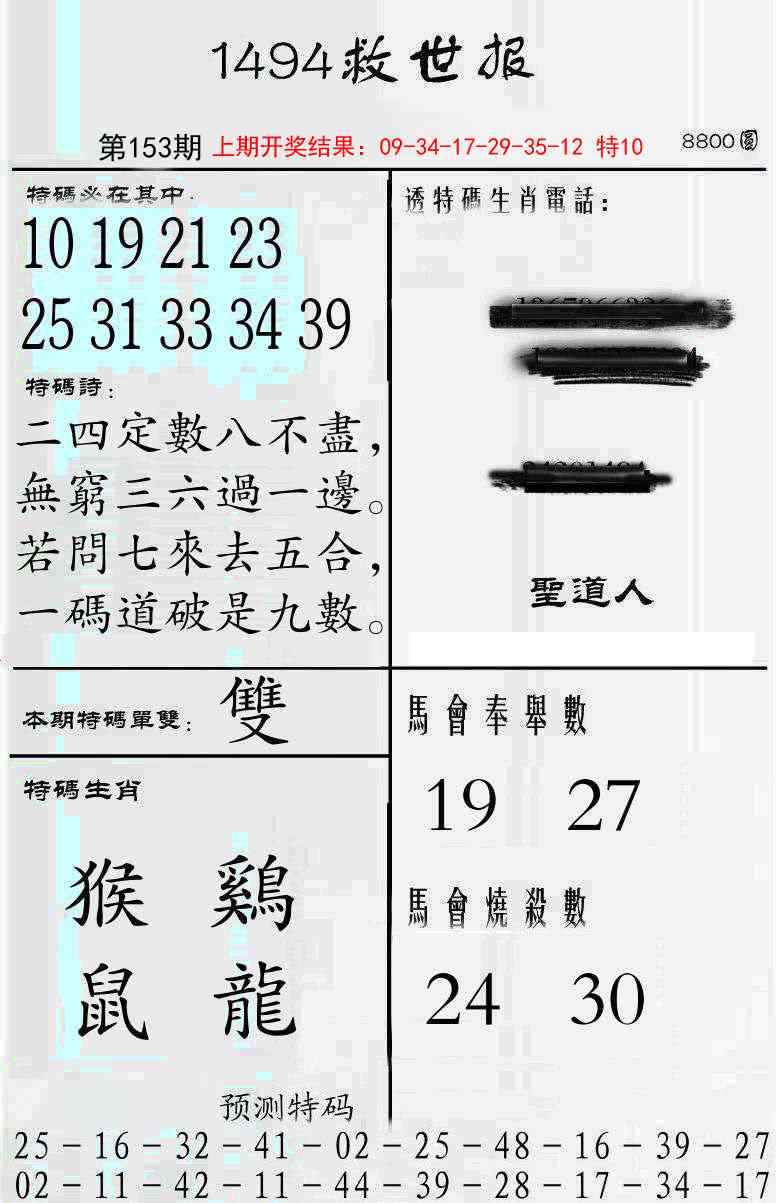 1494救世报
第153期 上期开奖结果：09-34-17-29-35-12 特10 8800圓
特碼必在其中.
10 19 21 23
25 31 33 34 39
特碼詩：
二四定數八不盡，
無窮三六過一邊。
若問七來去五合，
一碼道破是九數。
透特碼生肖電話：
聖道人
本期特碼單雙：雙
特碼生肖
猴 鷄
鼠 龍
馬會奉舉數
19 27
馬會燒殺數
24 30
预测特码
25－16－32－41－02－25－48－16－39－27
02－11－42－11－44－39－28－17－34－17